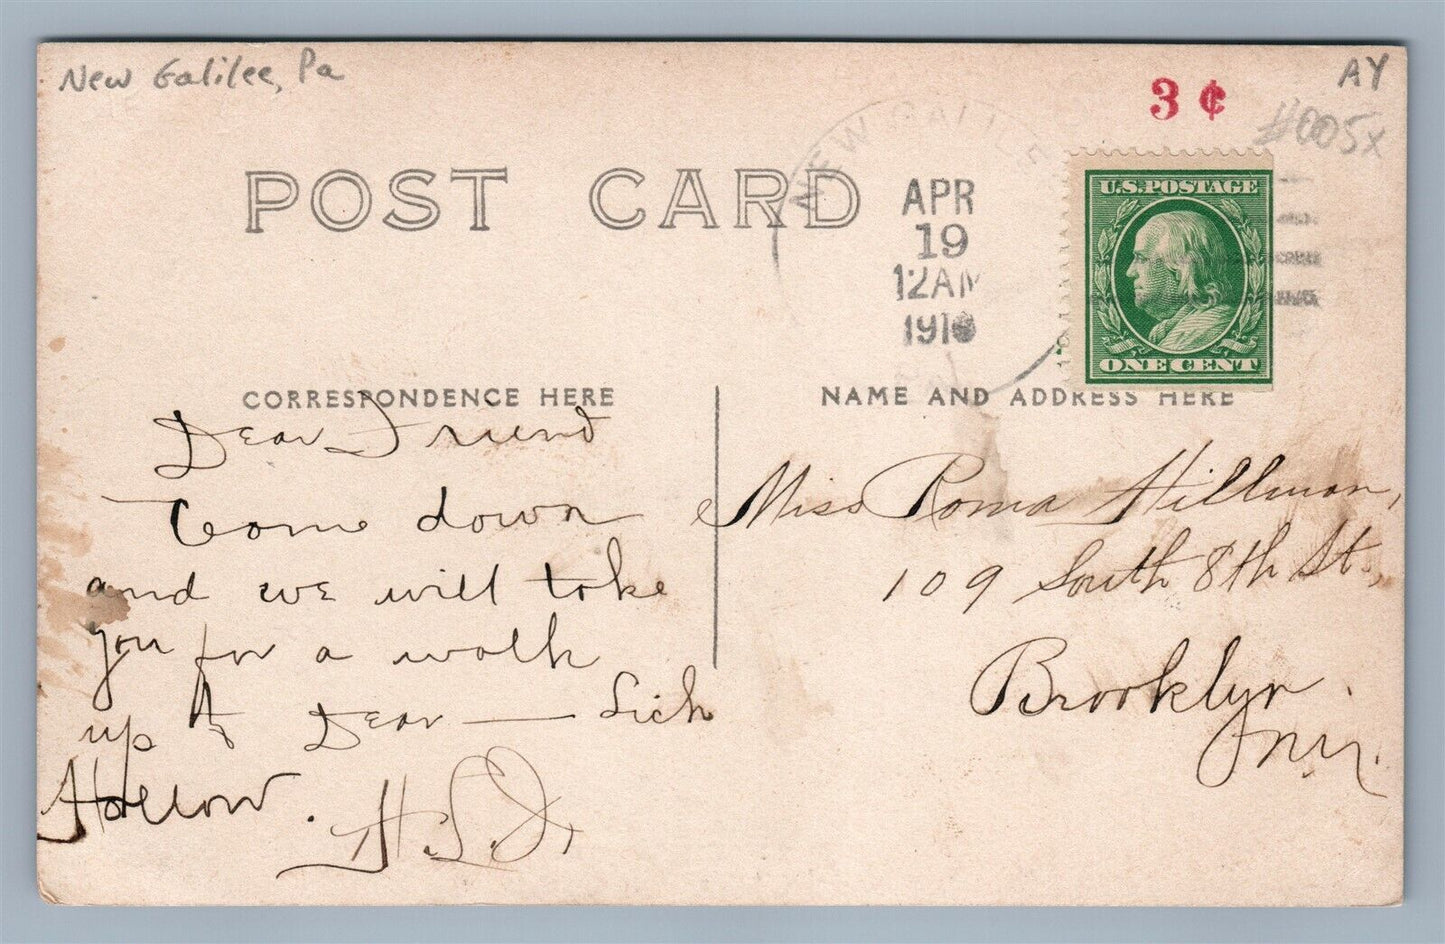 New Galilee, Pa
AY
3 ¢
#005x
POST CARD
NEW GALILEE
APR
19
12 AM
191
U.S. POSTAGE
ONE CENT
CORRESPONDENCE HERE
NAME AND ADDRESS HERE
Dear Friend
Come down
and we will take
you for a walk
up Dear — Lick
Hollow.
Miss Roma Hillman,
109 South 8th St.,
Brooklyn
N.Y.